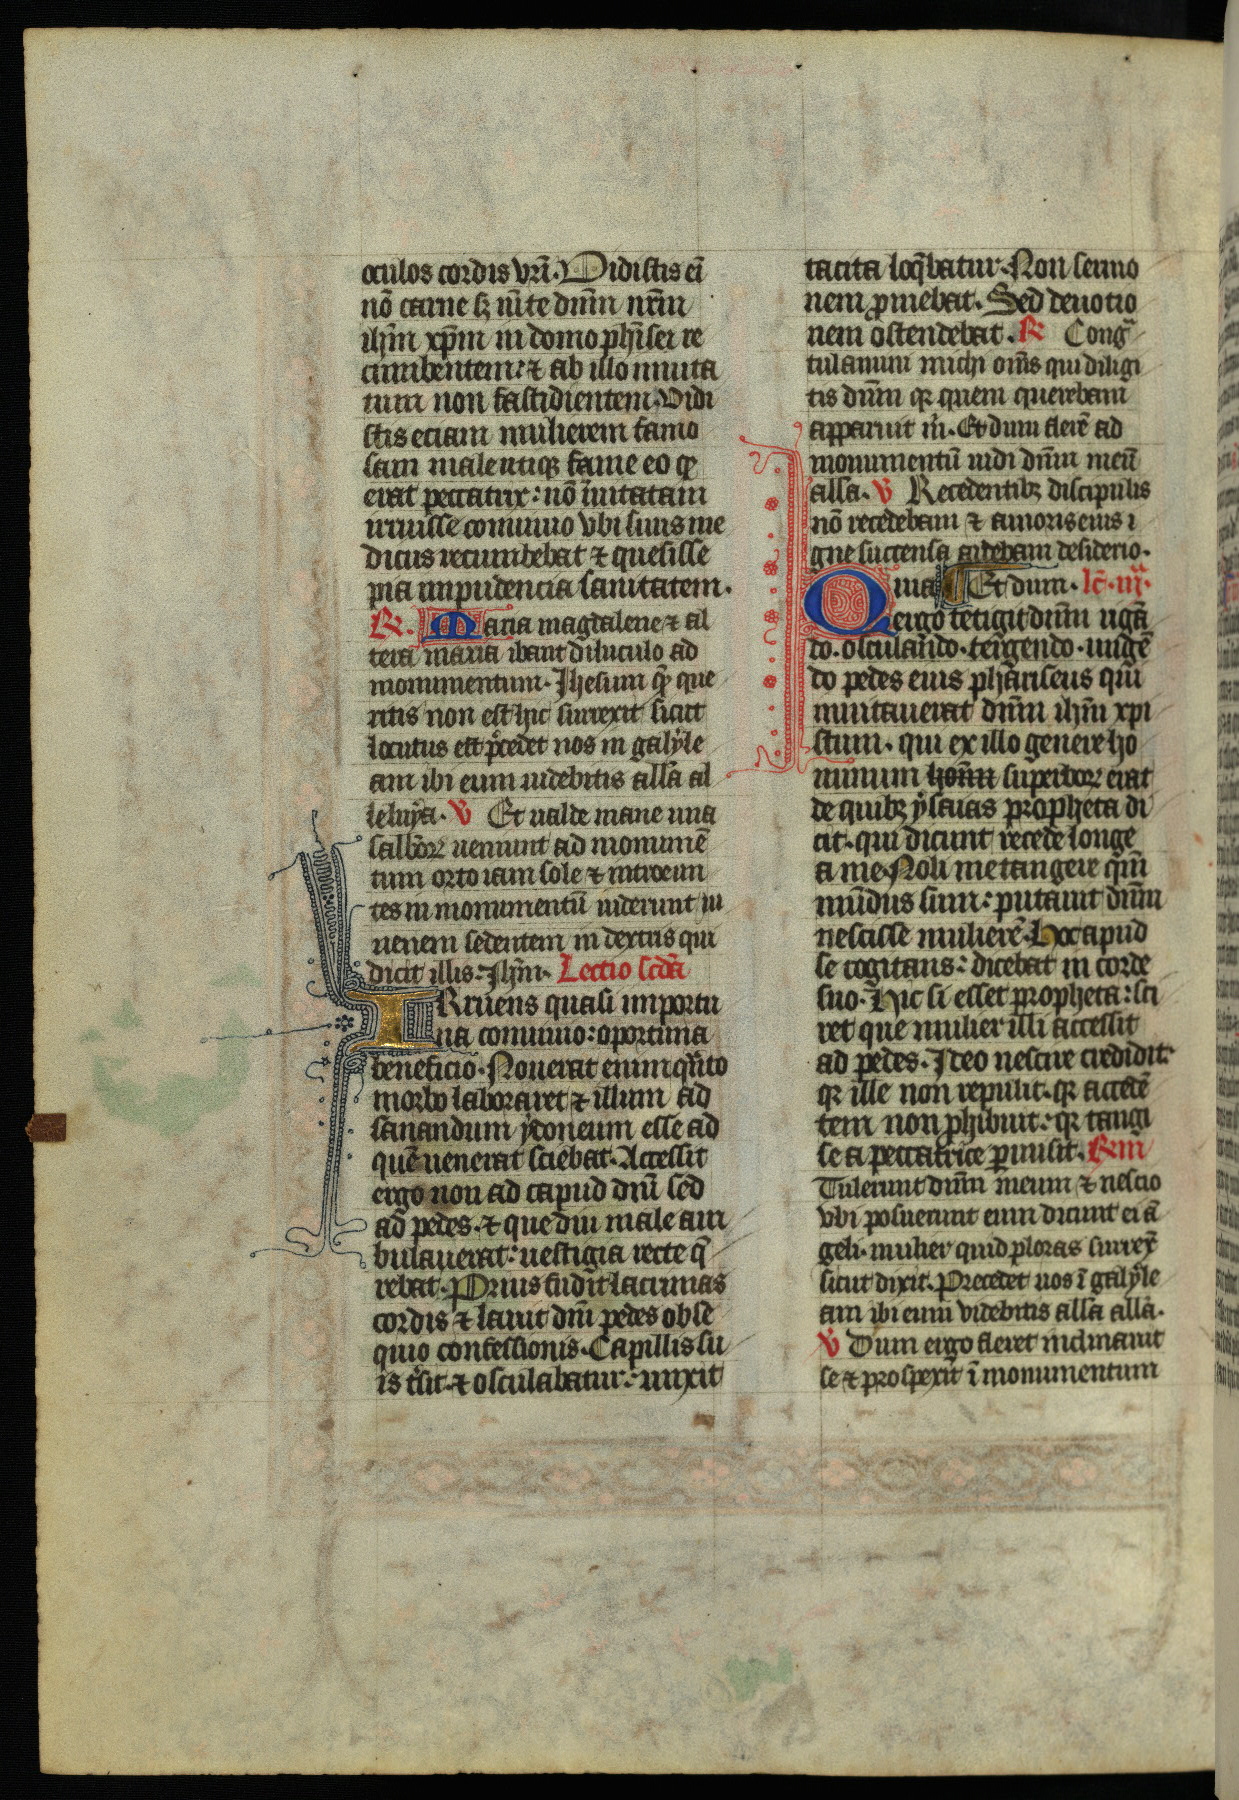 oculos cordis vrī. Uidistis eī
nō carne sꝫ mēte dnm̄ nrm̄
ihm̄ xpm̄ in domo phīsei re
cumbentem: ⁊ ab illo inuita
tum non fastidientem. Uidi
stis eciam mulierem famo
sam male utiqꝫ fame eo qꝫ
erat peccatrix: nō īuitatam
irruisse conuiuio vbi suus me
dicus recumbebat ⁊ quesisse
pia impudencia sanitatem.
R. Maria magdalene ⁊ al
tera maria ibant diluculo ad
monumentum. Jhesum qꝫ que
ritis non est hic surrexit sicut
locutus est p̄cedet uos in galyle
am ibi eum uidebitis allā al
leluya. V Et ualde mane una
sabbōꝝ ueniunt ad monumē
tum orto iam sole ⁊ introeun
tes in monumentū uiderunt iu
uenem sedentem in dextris qui
dicit illis: Jhm̄. Lectio scdā
IRruens quasi importu
na conuiuio: oportuna
beneficio. Nouerat enim qn̄to
morbo laboraret ⁊ illum ad
sanandum ydoneum esse ad
quē uenerat sciebat. Accessit
ergo non ad capud dnī sed
ad pedes. ⁊ que diu male am
bulauerat: uestigia recte q̄
rebat. Prius fudit lacrimas
cordis ⁊ lauit dnī pedes obse
quio confessionis. Capillis su
is t̄sit. ⁊ osculabatur: unxit
tacita loq̄batur. Non sermo
nem p̱mebat. Sed deuotio
nem ostendebat. R Congͣ
tulamini michi om̄s qui diligi
tis dnm̄ qꝛ quem querebam
apparuit m̄. Et dum flerē ad
monumentū uidi dnm̄ meū
alla. V Recedentibꝫ discipulis
nō recedebam ⁊ amoris eius i
gne succensa ardebam desiderio.
Quia Et dum. lc̄. iijͣ.
ergo tetigit dnm̄ rigā
do. osculando. tergendo. ungē
do pedes eius phariseus qui
inuitauerat dnm̄ ihm̄ xpi
stum. qui ex illo genere ho
minum homī superboꝝ erat
de quibꝫ ysaias propheta di
cit. qui dicunt recede longe
a me. Noli me tangere qm̄
mūdus sum: putauit dnm̄
nescisse mulierē. Hoc apud
se cogitans: dicebat in corde
suo. Hic si esset propheta: sci
ret que mulier illi accessit
ad pedes. Ideo nescire credidit
qꝛ ille non repulit. qꝛ accedē
tem non ꝓhibuit: qꝛ tangi
se a peccatrice ꝑmisit. Rm̄
Tulerunt dnm̄ meum ⁊ nescio
vbi posuerunt eum dicunt ei ā
geli. mulier quid ploras surrex̄
sicut dixit. Precedet uos ī galyle
am ibi eum videbitis alla allā.
V Dum ergo fleret inclinauit
se ⁊ prospexit ī monumentum